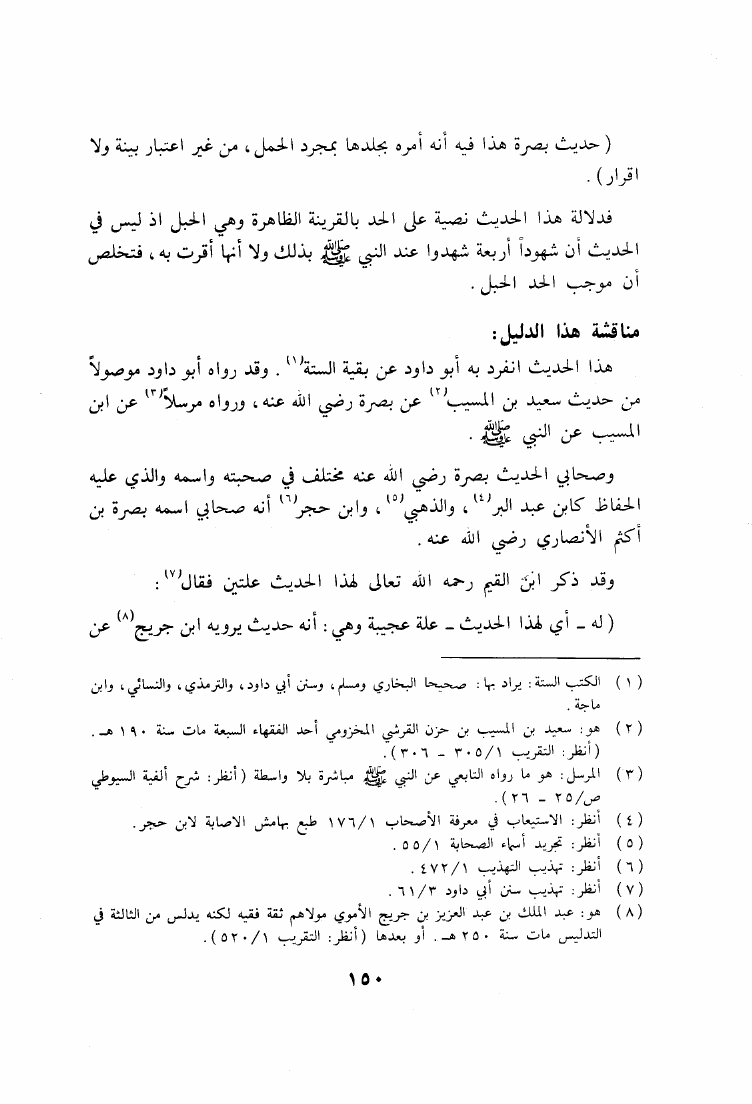 ( حديث بصرة هذا فيه أنه أمره بجلدها بمجرد الحمل، من غير اعتبار بينة ولا
اقرار).
فدلالة هذا الحديث نصية على الحد بالقرينة الظاهرة وهي الحبل اذ ليس في
الحديث أن شهوداً أربعة شهدوا عند النبي ﷺ بذلك ولا أنها أقرت به، فتخلص
أن موجب الحد الحبل.
مناقشة هذا الدليل:
هذا الحديث انفرد به أبو داود عن بقية الستة(١). وقد رواه أبو داود موصولاً
من حديث سعيد بن المسيب(٢) عن بصرة رضي الله عنه، ورواه مرسلاً(٣) عن ابن
المسيب عن النبي ﷺ.
وصحابي الحديث بصرة رضي الله عنه مختلف في صحبته واسمه والذي عليه
الحفاظ كابن عبد البر(٤)، والذهبي(٥)، وابن حجر(٦) أنه صحابي اسمه بصرة بن
أكثم الأنصاري رضي الله عنه.
وقد ذكر ابن القيم رحمه الله تعالى لهذا الحديث علتين فقال(٧):
( له - أي لهذا الحديث - علة عجيبة وهي: أنه حديث يرويه ابن جريج(٨) عن
(١) الكتب الستة: يراد بها: صحيحا البخاري ومسلم، وسنن أبي داود، والترمذي، والنسائي، وابن
ماجة.
(٢) هو: سعيد بن المسيب بن حزن القرشي المخزومي أحد الفقهاء السبعة مات سنة ١٩٠ هـ.
(أنظر: التقريب ٣٠٥/١ - ٣٠٦).
(٣) المرسل: هو ما رواه التابعي عن النبي ﷺ مباشرة بلا واسطة (أنظر: شرح ألفية السيوطي
ص/٢٥ - ٢٦).
(٤) أنظر: الاستيعاب في معرفة الأصحاب ١٧٦/١ طبع بهامش الاصابة لابن حجر.
(٥) أنظر: تجريد أسماء الصحابة ٥٥/١.
(٦) أنظر: تهذيب التهذيب ٤٧٢/١.
(٧) أنظر: تهذيب سنن أبي داود ٦١/٣.
(٨) هو: عبد الملك بن عبد العزيز بن جريج الأموي مولاهم ثقة فقيه لكنه يدلس من الثالثة في
التدليس مات سنة ٢٥٠ هـ. أو بعدها (أنظر: التقريب ٥٢٠/١).
١٥٠